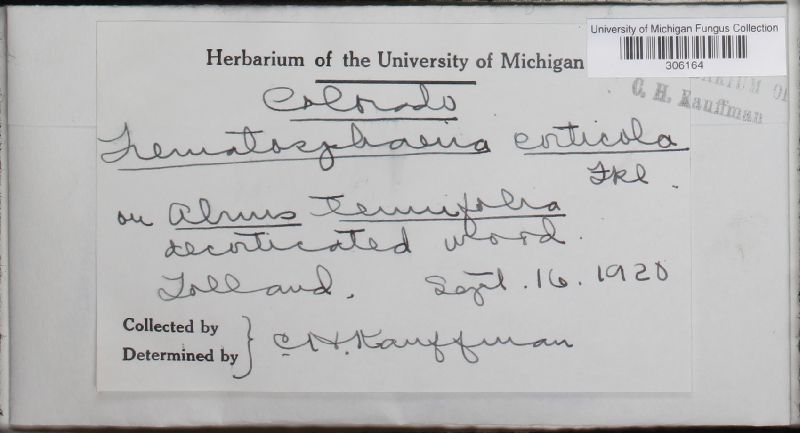 University of Michigan Fungus Collection
306164
Herbarium of the University of Michigan
C. H. Kauffman
Colorado
Trematosphaeria corticola
Fkl.
on Alnus tenuifolia
decorticated wood.
Tolland. Sept. 16. 1920
Collected by
Determined by
C H. Kauffman